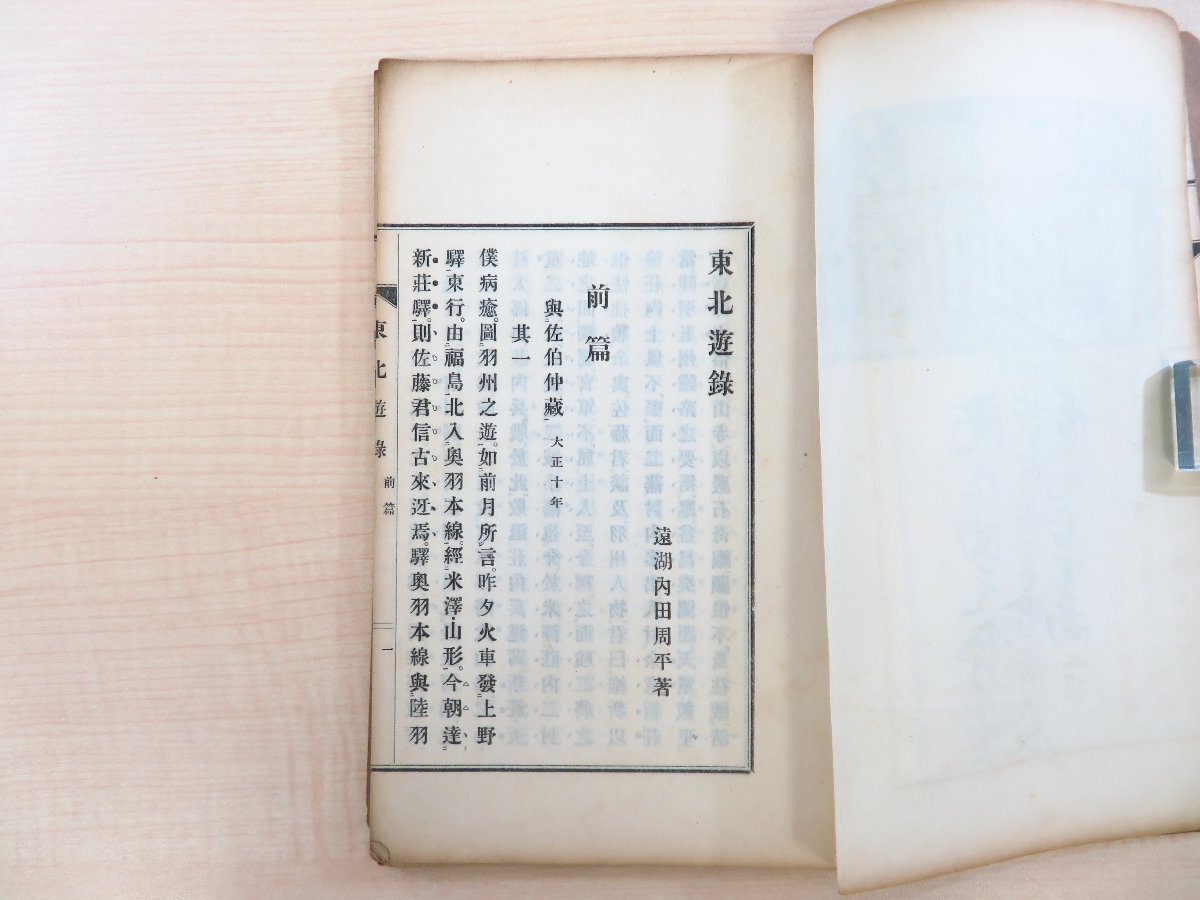 東北遊錄
遠湖內田周平著
前篇
與佐伯仲藏 大正十年
其一
僕病癒。圖羽州之遊。如前月所言。昨夕火車發上野
驛東行。由福島北入奧羽本線。經米澤・山形。今朝達
新莊驛。則佐藤君信古來迓焉。驛奧羽本線與陸羽
東北遊錄 前篇 一